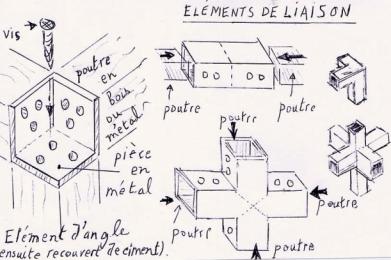 ELÉMENTS DE LIAISON
vis
poutre
en
bois
ou
métal
pièce
en
métal
poutre
poutre
poutre
poutre
poutre
poutre
Elément d'angle
(ensuite recouvert de ciment).